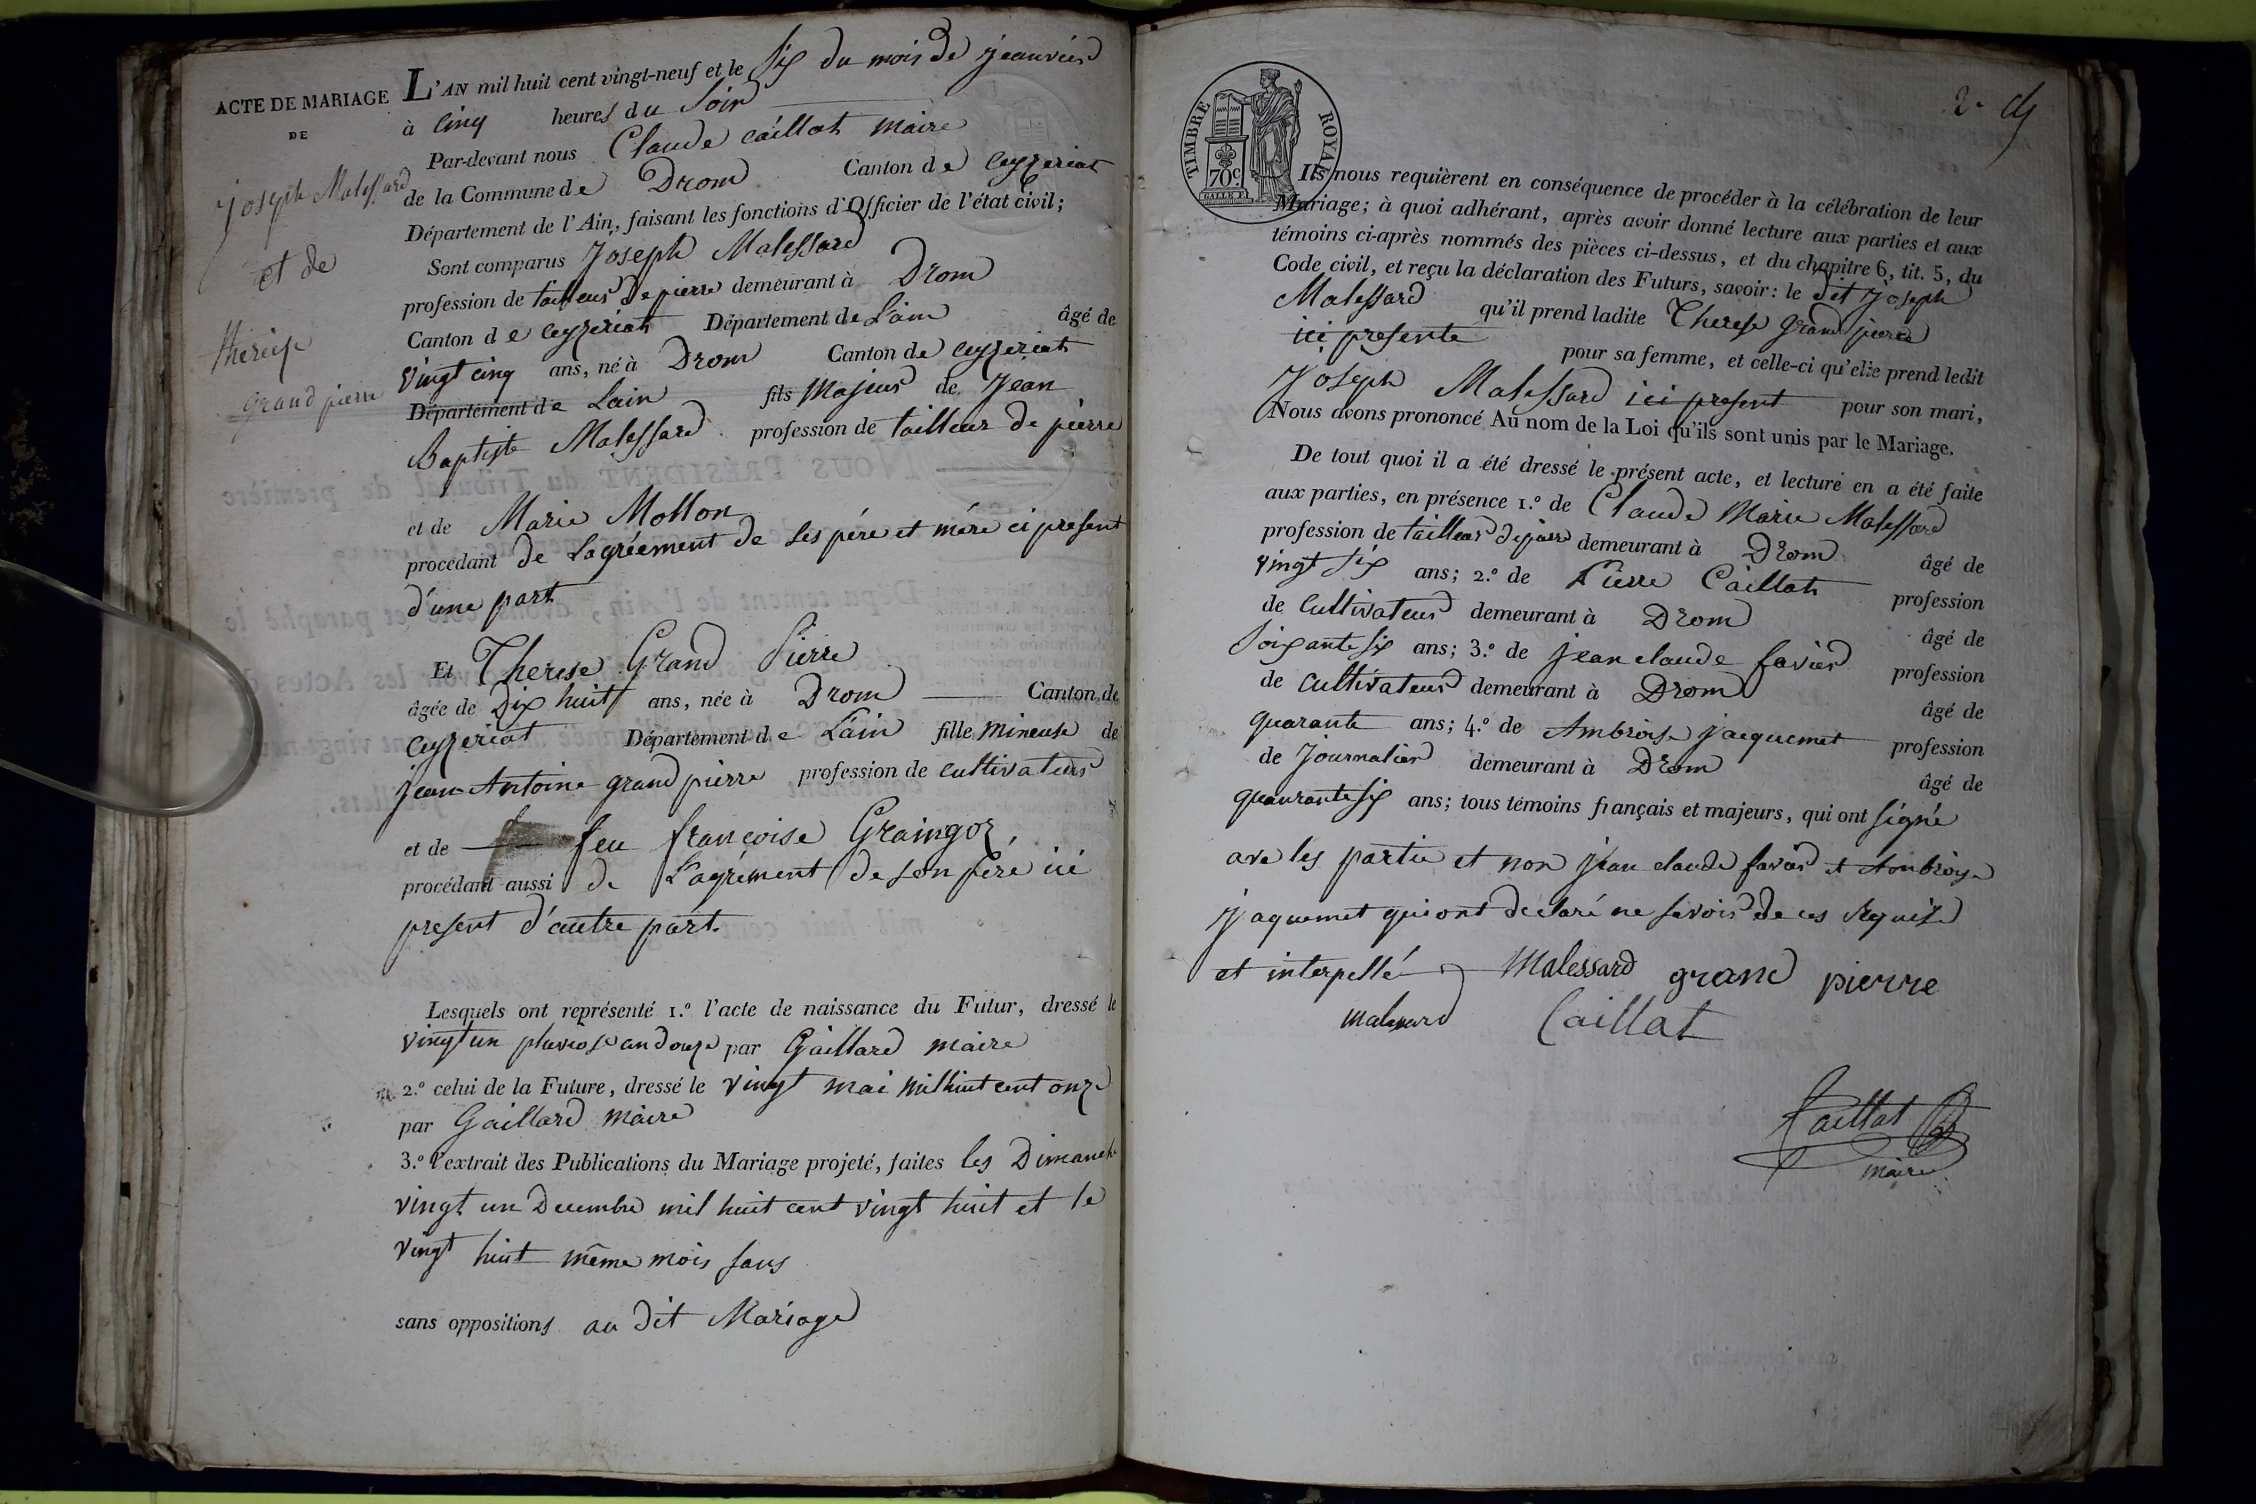 ACTE DE MARIAGE
DE
Joseph Malessard
et de
thereise
grand pierre
L'AN mil huit cent vingt-neuf et le Six du mois de jeanvier
à cinq heures du Soir
Par-devant nous Claude Caillat maire
de la Commune de Drom Canton de Ceyzeriat
Département de l'Ain, faisant les fonctions d'Officier de l'état civil;
Sont comparus Joseph Malessard
profession de tailleur de pierre demeurant à Drom
Canton de Ceyzeriat Département de Lain âgé de
vingt cinq ans, né à Drom Canton de Ceyzeriat
Département de Lain fils Majeur de Jean
Baptiste Malessard profession de tailleur de pierre
et de Marie Mollon
procédant de Lagréement de Ses pére et mére ci present
d'une part
Et Therese Grand Pierre
âgée de Dix huit ans, née à Drom Canton de
Ceyzeriat Département de Lain fille mineuse de
jean Antoine grand pierre profession de cultivateur
et de feu francoise Graingoz
procédant aussi de L'agrément de son péré ici
present d'autre part.
Lesquels ont représenté 1.º l'acte de naissance du Futur, dressé le
vingt un pluviose an douze par Gaillard maire
2.º celui de la Future, dressé le vingt mai mil huit cent onze
par Gaillard maire
3.º l'extrait des Publications du Mariage projeté, faites les Dimanche
vingt un Decembre mil huit cent vingt huit et le
vingt huit même mois sans
sans oppositions au dit Mariage
2.e
TIMBRE ROYAL
70 c.
Ils nous requièrent en conséquence de procéder à la célébration de leur
Mariage; à quoi adhérant, après avoir donné lecture aux parties et aux
témoins ci-après nommés des pièces ci-dessus, et du chapitre 6, tit. 5, du
Code civil, et reçu la déclaration des Futurs, savoir: le dit Joseph
Malessard qu'il prend ladite Therese Grand pierre
ici presente pour sa femme, et celle-ci qu'elle prend ledit
Joseph Malessard ici present pour son mari,
Nous avons prononcé Au nom de la Loi qu'ils sont unis par le Mariage.
De tout quoi il a été dressé le présent acte, et lecture en a été faite
aux parties, en présence 1.º de Claude Marie Malessard
profession de tailleur de pierre demeurant à Drom âgé de
vingt six ans; 2.º de Pierre Caillat profession
de Cultivateur demeurant à Drom âgé de
Soixante Six ans; 3.º de jean claude favier profession
de cultivateur demeurant à Drom âgé de
quarante ans; 4.º de Ambroise jacquemet profession
de Journalier demeurant à Drom âgé de
quaurante six ans; tous témoins français et majeurs, qui ont signé
ave les partie et non jean claude favier et Ambroise
Jaquemet qui ont déclaré ne savoir de ces requis
et interpellé Malessard grand pierre
malessard Caillat
Caillat
maire